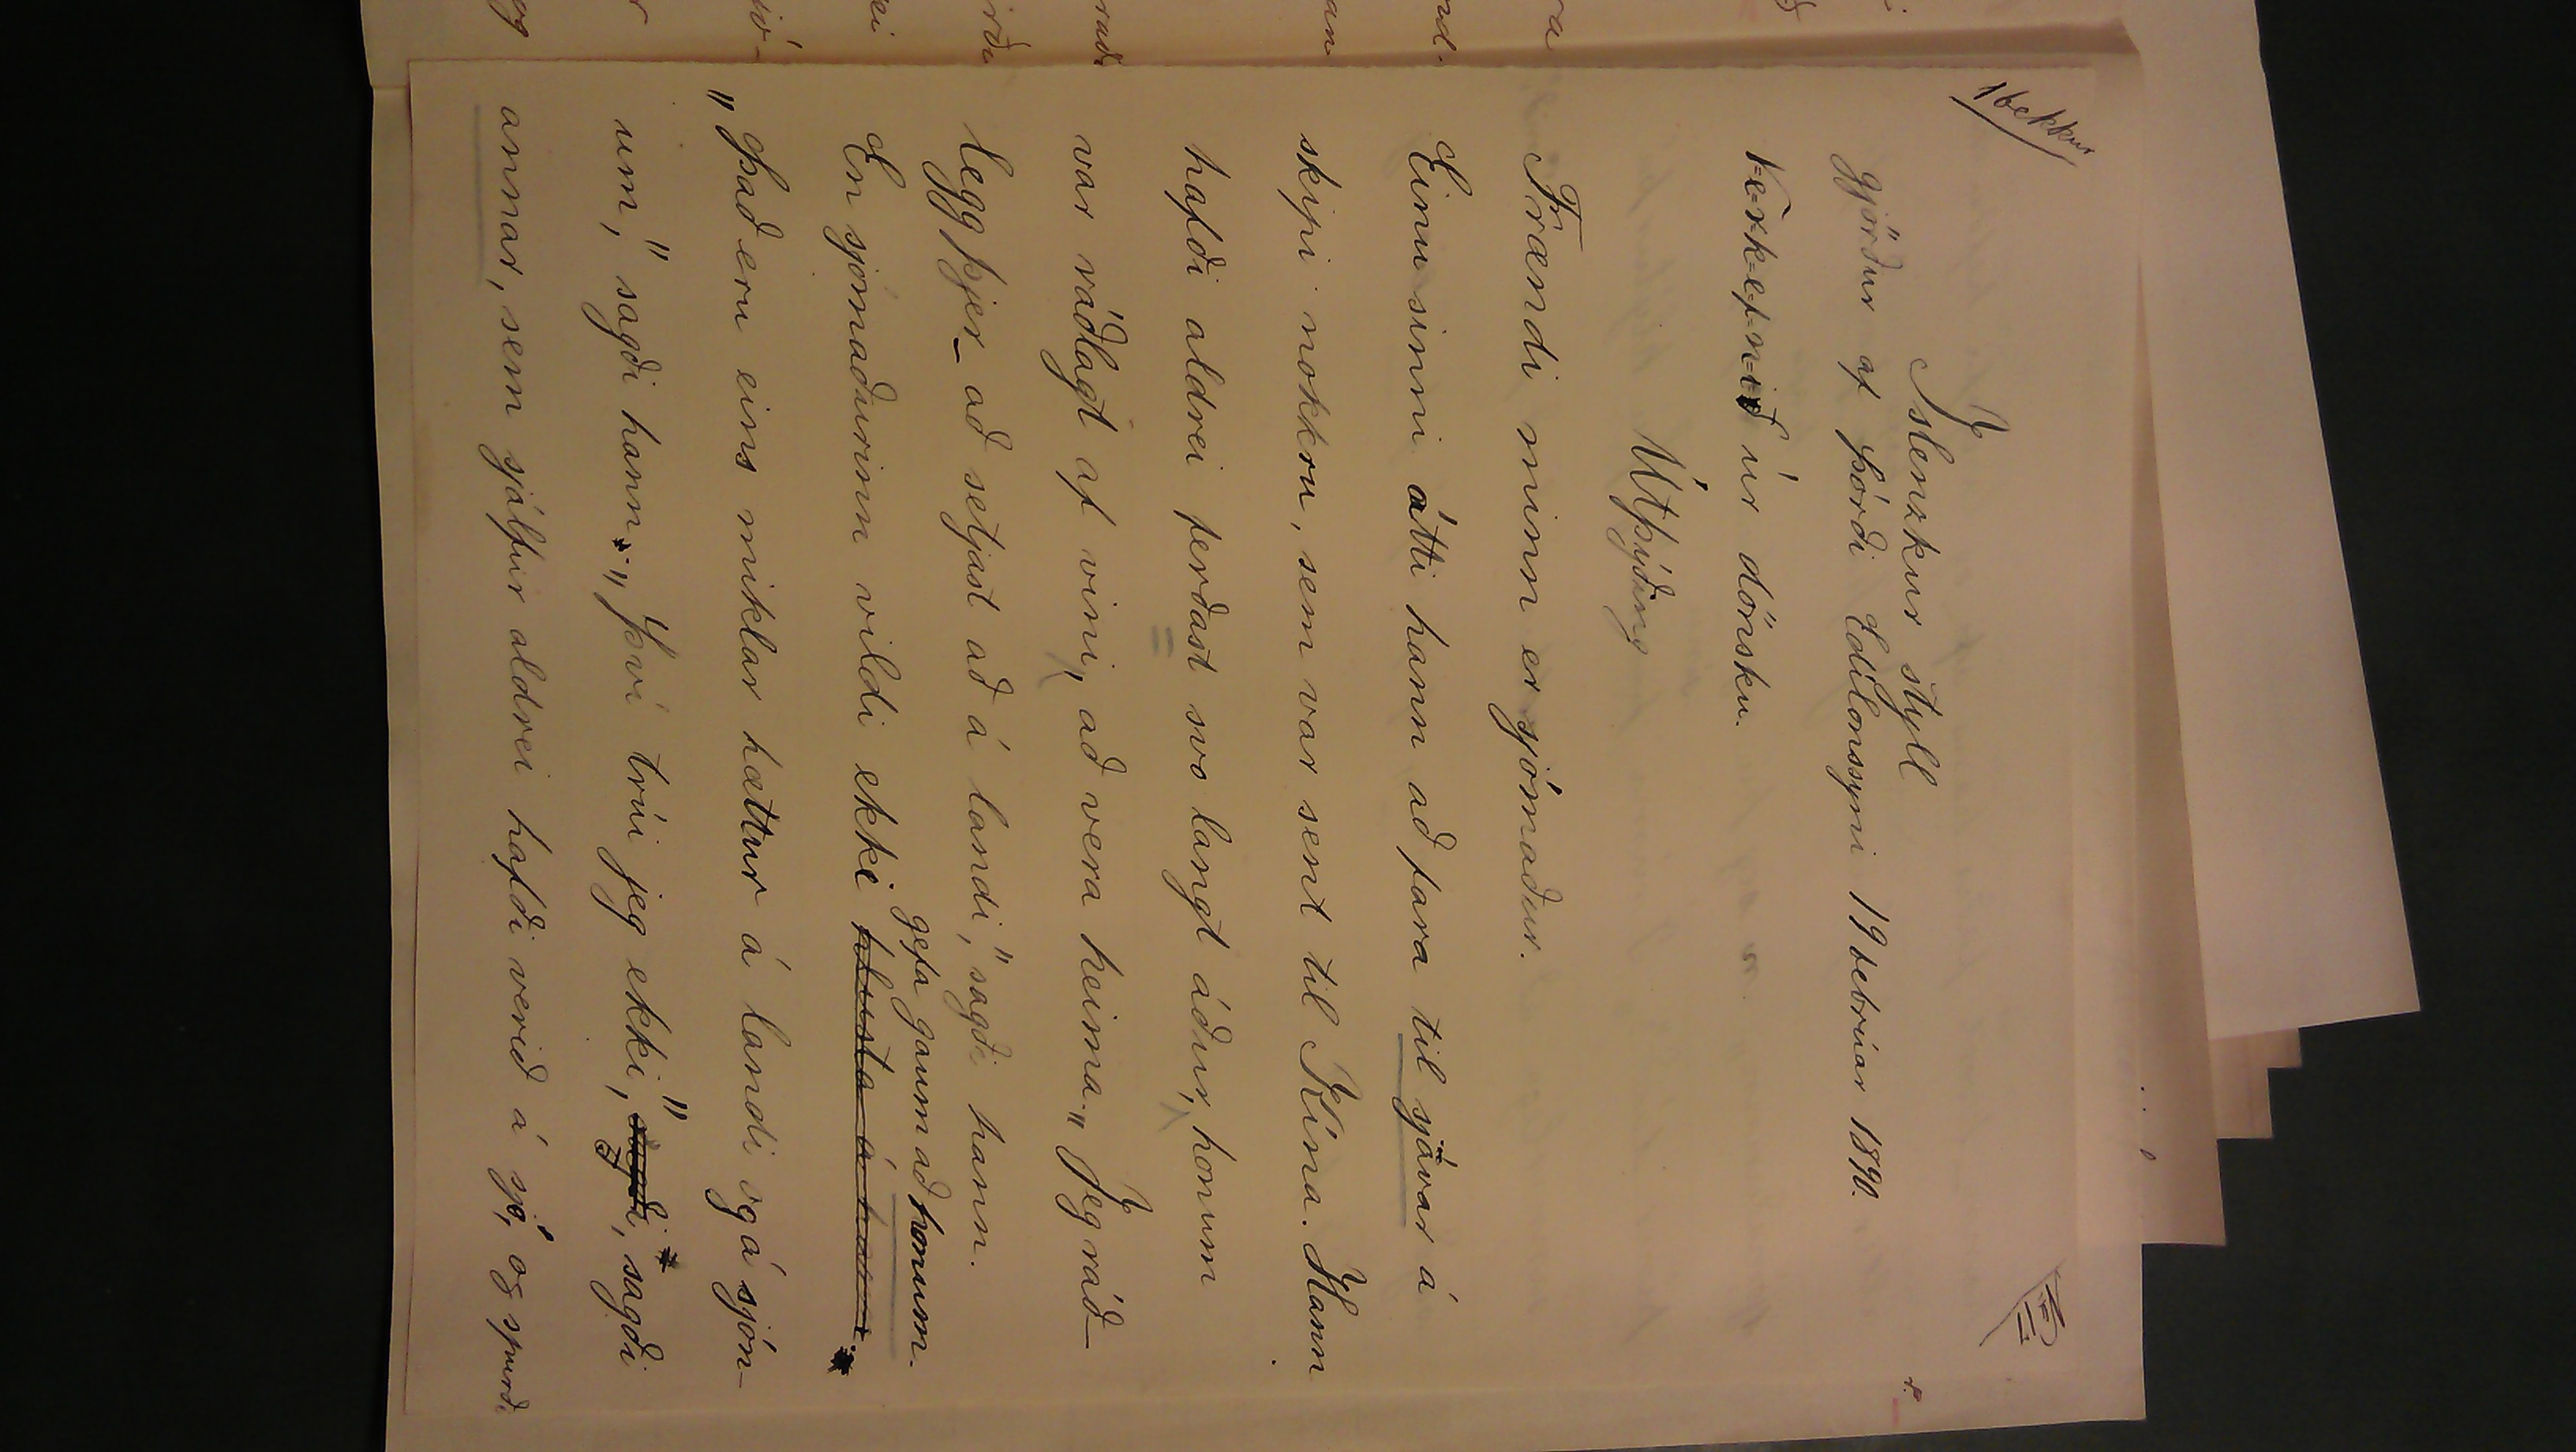 1 bekkur
Íslenzkur stýll
gjörður af Þórði Edílonssyni 19 febrúar 1890.
Verkefnið úr dönsku.
Útþýðing
Frændi minn er sjómaður.
Einu sinni átti hann að fara til sjávar á
skipi nokkru, sem var sent til Kína. Hann
hafði aldrei ferðast svo langt áður, honum
var ráðlagt af vini, að vera heima. „Jeg ráð-
legg þjer að setjast að á landi,“ sagði hann.
gefa gaum að honum.
En sjómaðurinn vildi ekki hlusta á hann.
„Það eru eins miklar hættur á landi og á sjón-
um,“ sagði hann. „Því trúi jeg ekki,“ sagði, sagði
annar, sem sjálfur aldrei hafði verið á sjó, og spurði